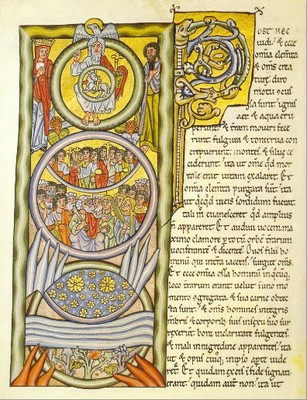 Post hec
uidi & ecce
omia elem̄ta
& om̄is crea
tura diro
motu
sunt ignis
aer & aqua eru
perunt & terram moueri fece
runt fulgura & tonitrua con
crepuerunt montes & silue ce
ciderunt ita ut om̄e qd̄ mor
tale erat uitam exalaret. Et
omia elem̄ta purgata sunt ita
ut qcqd in eis sordidum fuerat
tali m euanesceret qd̄ amplius
n̄ appareret. Et audiui uocem ma
ximo clamore p totū orbē terrarū
uociferantē & dicentē. O uos filii ho
minū qui in terra iacetis surgite om̄s.
Et ecce omia ossa hominū in quocq;
loco terrarum erant uelut in uno mo
mento ogregata & sua carne obtec
ta sunt & om̄s homines integris
mēbris & corporib; suis in sexu suo sur
rexerunt bonis in claritate fulgentib;
& malis in nigredine apparentib; ita
ut & opus cuiq; in ipso apte uide
ret. Et quidam ex eis in fide signati
erant quidam aut non ita ut